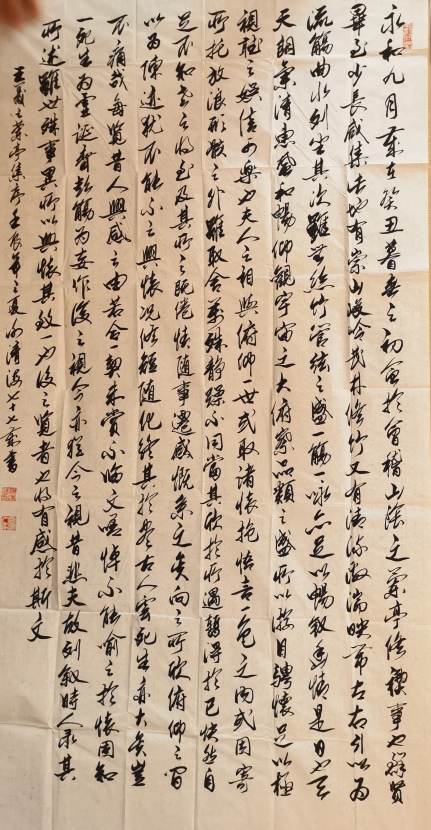 永和九月歲在癸丑暮春之初會於會稽山陰之蘭亭修禊事也群賢
畢至少長咸集此地有崇山峻嶺茂林修竹又有清流激湍映帶左右引以為
流觴曲水列坐其次雖無絲竹管絃之盛一觴一詠亦足以暢敘幽情是日也
天朗氣清惠風和暢仰觀宇宙之大俯察品類之盛所以遊目騁懷足以極
視聽之娛信可樂也夫人之相與俯仰一世或取諸懷抱悟言一室之內或因寄
所托放浪形骸之外雖取舍萬殊靜躁不同當其欣於所遇暫得於己快然自
足不知老之將至及其所之既倦情隨事遷感慨系之矣向之所欣俯仰之間
以為陳迹猶不能不之興懷況修短隨化終其於盡古人雲死生亦大矣豈
不痛哉每覽昔人興感之由若合一契未嘗不臨文嗟悼不能喻之於懷固知
一死生為虛誕齊彭觴為妄作後之視今亦猶今之視昔悲夫故列敘時人录其
所述雖世殊事異所以興懷其致一也後之覽者也將有感於斯文
王羲之蘭亭集序壬辰年之夏清海七十七歲書